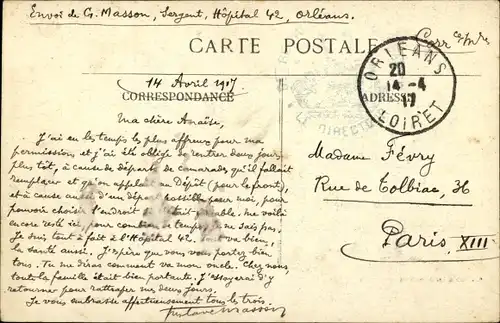 Envoi de G. Masson, Sergent, Hôpital 42, Orléans.
CARTE POSTALE
ORLEANS
20
14-4
17
LOIRET
14 Avril 1917
CORRESPONDANCE
ADRESSE
DIRECT
Ma chère Anaïse,
J'ai eu les temps les plus affreux pour ma
permission, et j'ai été obligé de rentrer deux jours
plus tôt, à cause de départs de camarades qu'il fallait
remplacer et qu'on appelait au Dépôt (pour le front),
et à cause aussi d'un départ possible pour moi, pour
pouvoir choisir l'endroit. me voilà
encore resté ici, pour combien de temps, je ne sais pas.
Je suis tout à fait à l'Hôpital 42. Tout va bien,
la santé aussi. J'espère que vous vous portez bien
tous. Tu me diras comment va mon oncle. Chez nous,
toute la famille était bien portante. J'essayerai d'y
retourner pour rattraper mes deux jours.
Je vous embrasse affectueusement tous les trois.
Gustave Masson
Madame Févry
Rue de Tolbiac, 36
Paris XIII